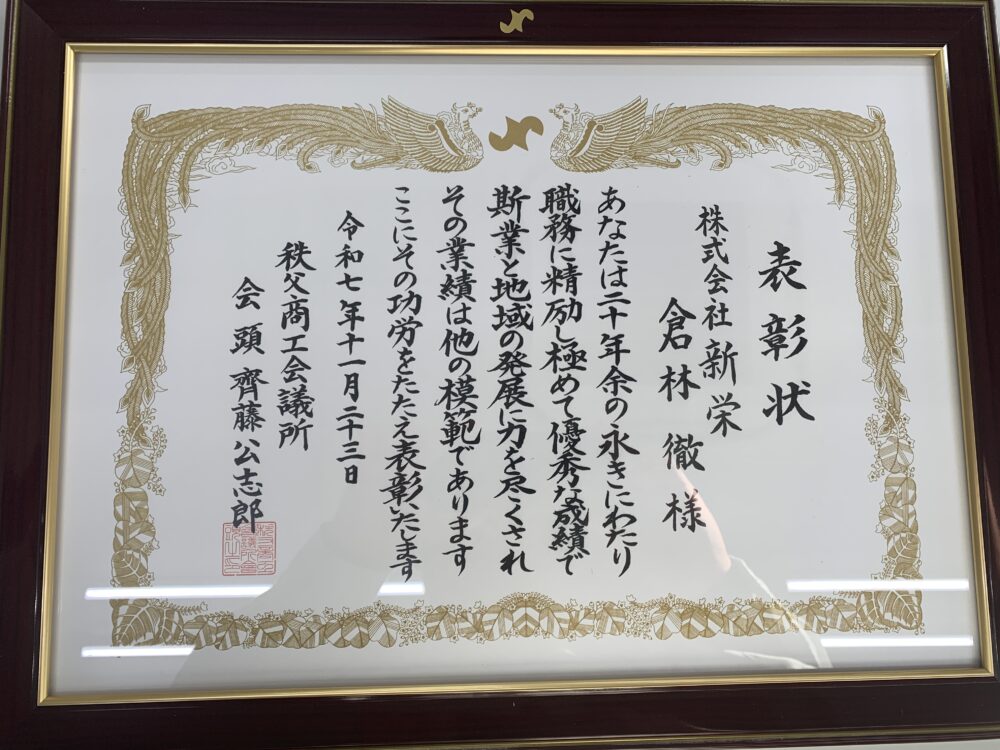 表彰状
株式会社新栄
倉林徹様
あなたは二十年余の永きにわたり
職務に精励し極めて優秀な成績で
斯業と地域の発展に力を尽くされ
その業績は他の模範であります
ここにその功労をたたえ表彰いたします
令和七年十一月二十三日
秩父商工会議所
会頭 齊藤公志郎